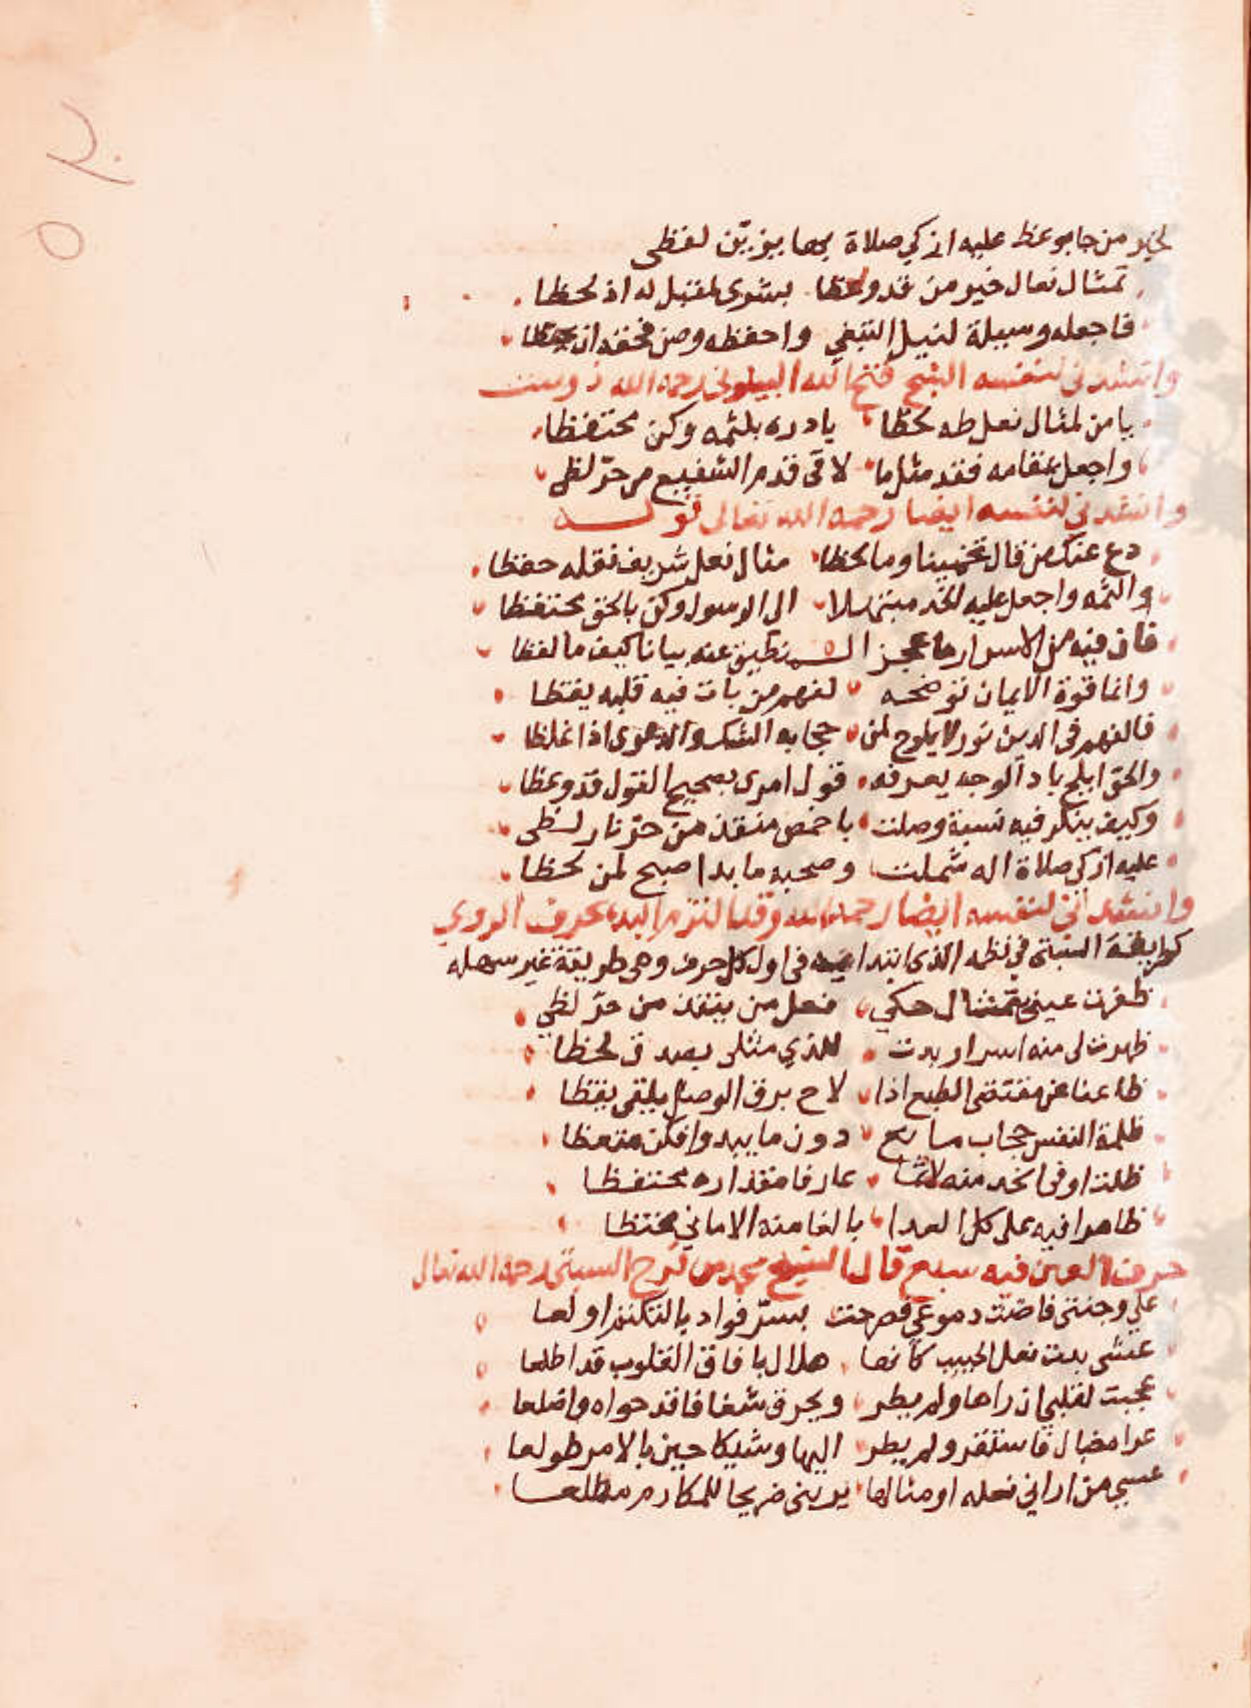 لخير من جا بوعظ عليه ازكي صلاة بها يزيّن لفظي
تمثال نعال خير من قد وعظا بشرى لمقبل له اذ لحظا
فاجعله وسيلة لنيل التبغي واحفظه وصن فحقه ان
وانشدني لنفسه الشيخ فتح الله البيلوني رحمه الله
يا من لمثال نعل طه لحظا بادره بلثمه وكن محتفظا
واجعل مقامه فقد مثل ما لاقى قدم الشفيع من حرّ لظى
وانشدني لنفسه ايضا رحمه الله تعالى قوله
دع عنك من قال تخمينا وما لحظا مثال نعل شريف نقله حفظا
والثمه واجعل عليه الخد مبتهلا الى الرسول وكن بالحق محتفظا
فان فيه من الاسرار ما عجز الـ ـمنطيق عنه بيانا كيف ما لفظا
وانما قوة الايمان توضحه لفهم من بات فيه قلبه يقظا
فالفهم في الدين نور لا يلوح لمن حجابه الشك والدعوى اذا غلظا
والحق ابلج بادآلوجه يعرفه قول امرى بصحيح القول قد وعظا
وكيف ينكر فيه نسبة وصلت باخمص منقذ من حرّ نار لظى
عليه ازكى صلاة اله شملت وصحبه ما بدا صبح لمن لحظا
وانشدني لنفسه ايضا رحمه الله وقد التزم البدء بحرف الروي
كطريقة السبتي في نظمه الذي ابتدا فيه في اول كل حرف وهي طريقة غير سهله
ظفرت عيني بتمثال حكي نعل من ينقذ من حرّ لظي
ظهرت لي منه اسرار بدت للذي مثلى بصدق لحظا
ظاعنا عن مقتضى الطبع اذا لاح برق الوصل يلقى يقظا
ظلمة النفس حجاب مانع دون ما يبدوا فكن متعظا
ظلت اوفي الخد منه لاثما عارفا مقداره محتفظا
ظاهرا فيه على كل العدا بالغا منه الاماني
حرف العين فيه سبع قال الشيخ محمد بن فرج السبتي رحمه الله تعالى
علي وجنتى فاضت دموعي فصرحت بسرّ فواد بالتكتم اولعا
عشى بدت نعل الحبيب كانها هلال بافاق القلوب قد اطلعا
عجبت لقلبي ان راها ولم يطر ويحرق شغافا قد حواه واضلعا
عرا مضبال فاستقر ولم يطر اليها وشيكا حين بالامر طولعا
عسى من اراني نعله او مثالها يريني ضريحا للمكارم مطلعا